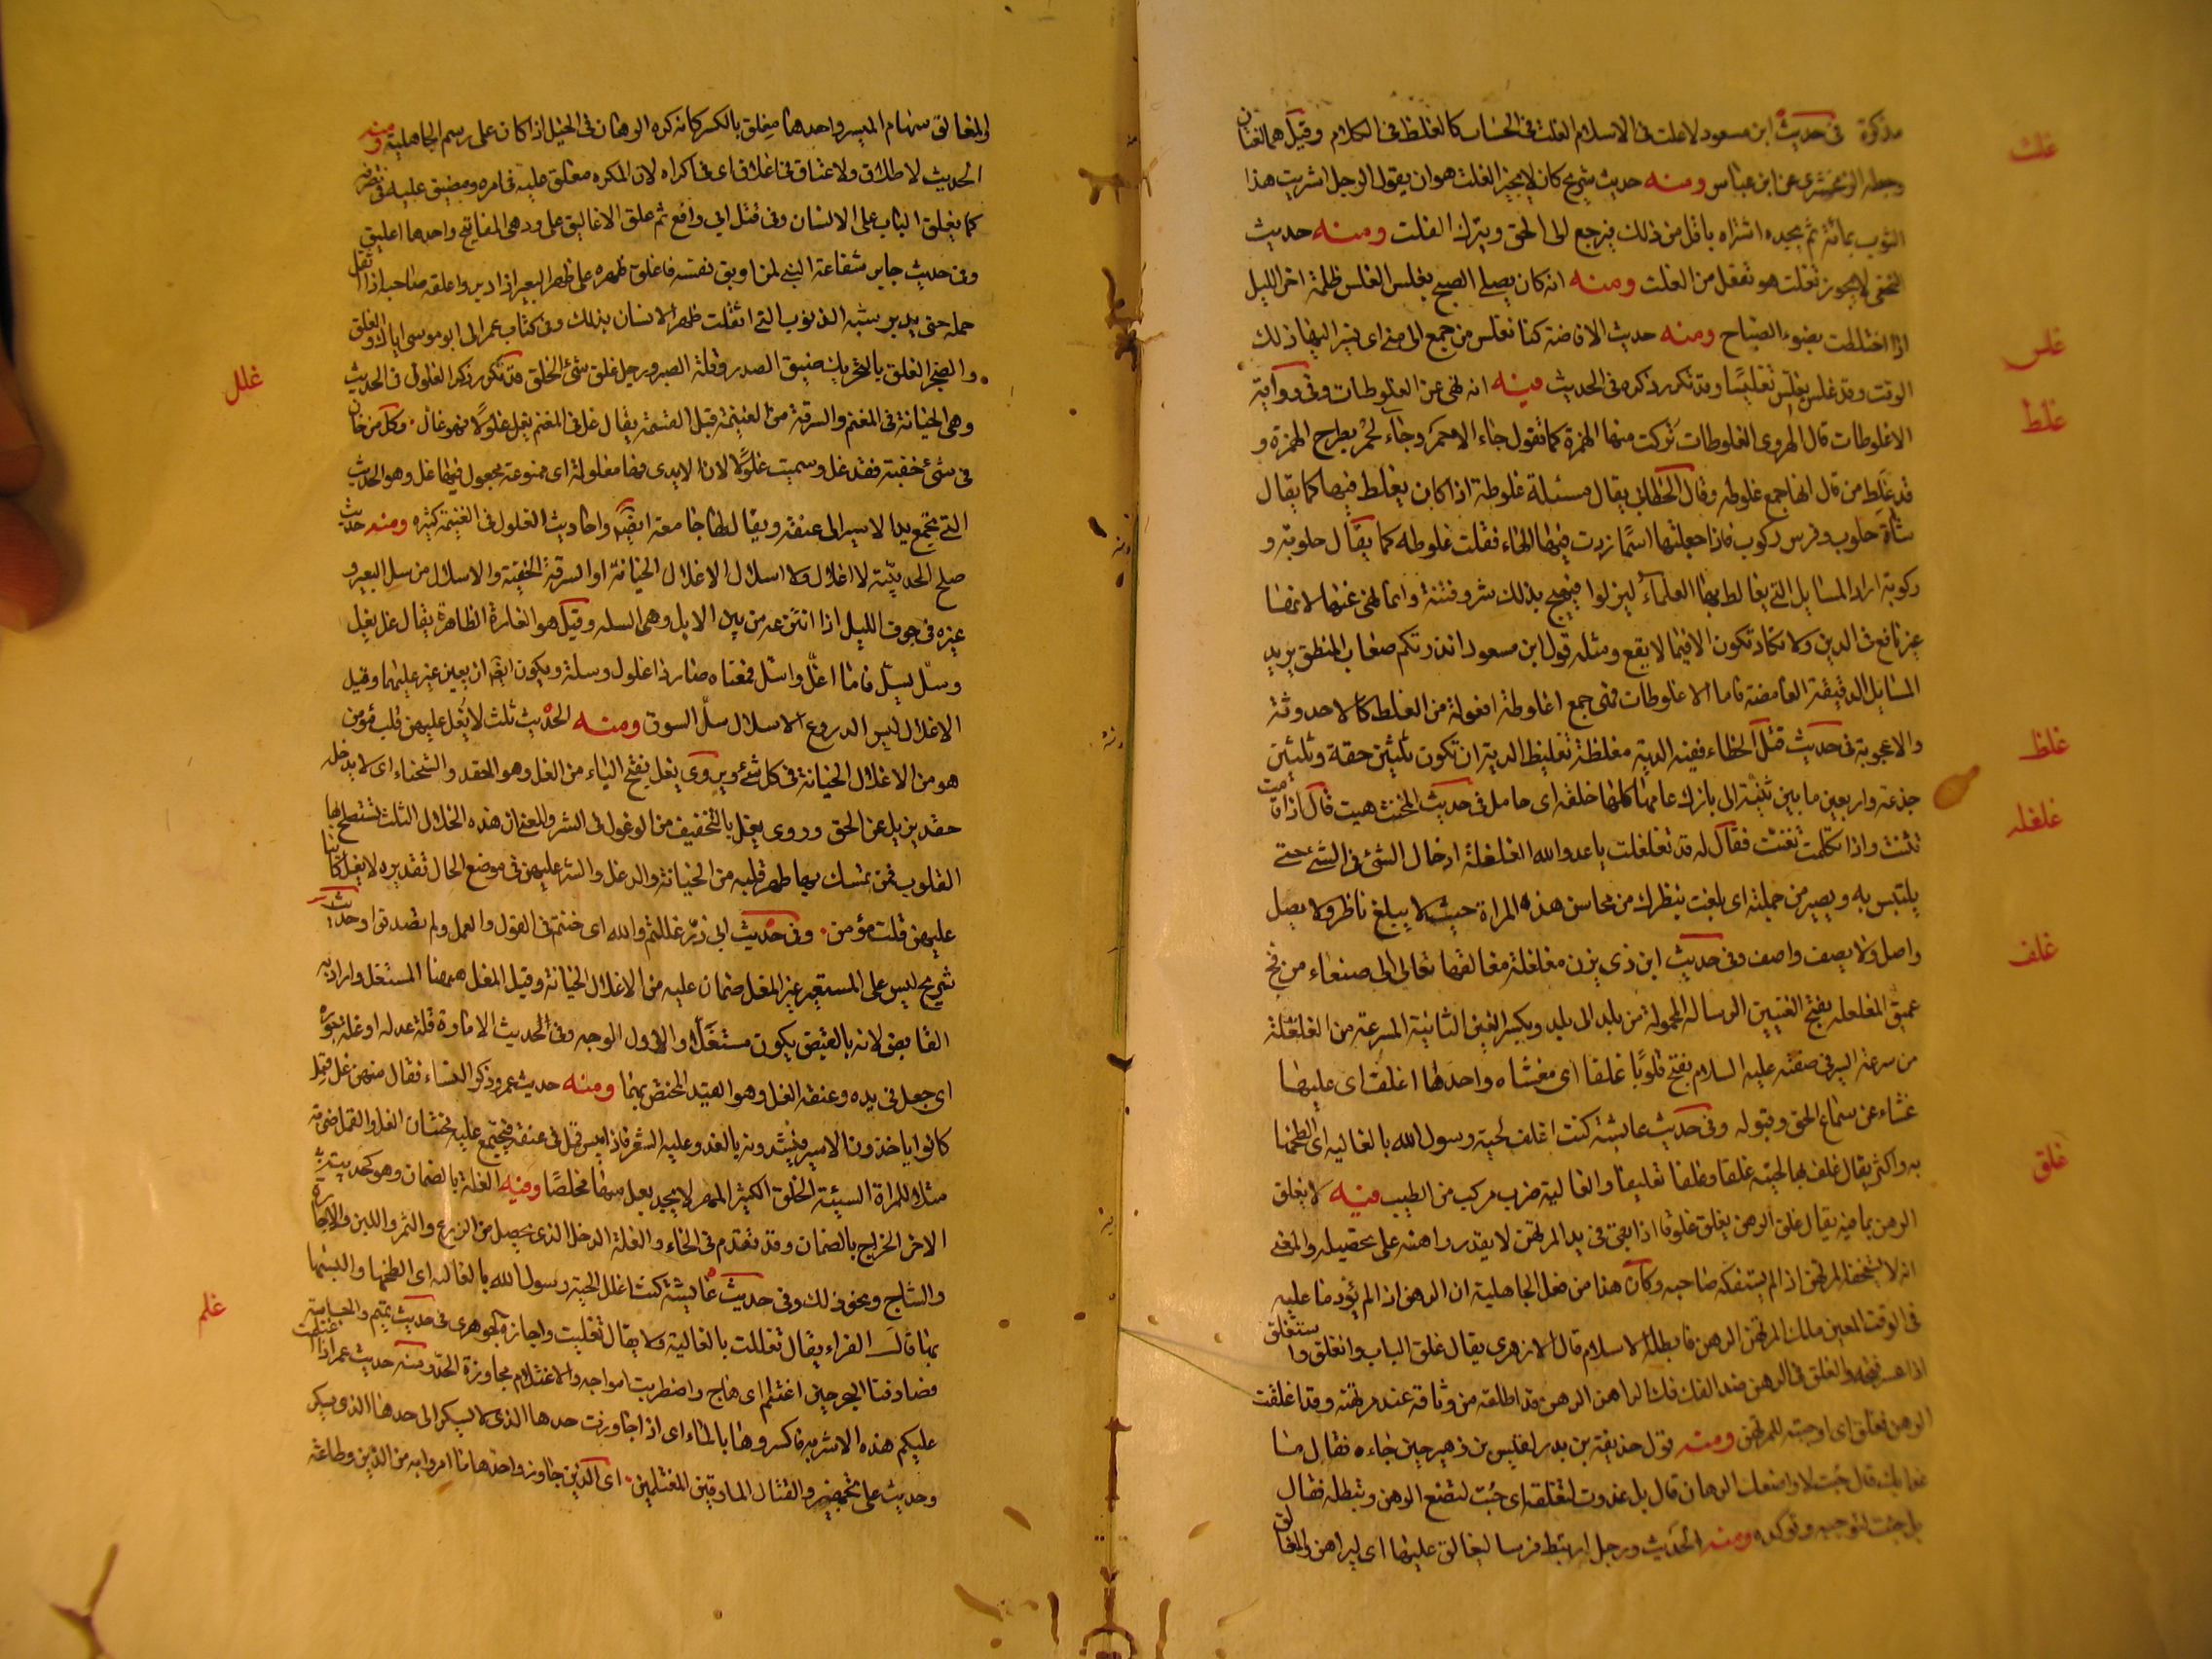 غلت
مذكرة في حديث ابن مسعود لا غلت في الاسلام الغلت في الحساب كالغلط في الكلام وقيل هما لغتان
وجعله الزمخشري عن ابن عباس ومنه حديث شريح كان لا يجيز الغلت هو ان يقول الرجل اشتريت هذا
الثوب بمائة ثم يجده اشتراه باقل من ذلك فيرجع الى الحق ويترك الغلت ومنه حديث
النخعي لا يجوز تغلت هو تفعل من الغلت ومنه انه كان يصلي الصبح بغلس الغلس ظلمة اخر الليل
غلس
اذا اختلطت بضوء الصباح ومنه حديث الافاضة كنا نغلس من جمع الى منى اي نسير اليها ذلك
الوقت وقد غلس يغلس تغليسا وقد تكرر ذكره في الحديث فيه انه نهى عن الغلوطات وفي رواية
غلط
الاغلوطات قال الهروي الغلوطات تركت منها الهمزة كما تقول جاء الاحمر وجاء لحمر بطرح الهمزة و
قد غلط من قال انها جمع غلوطه وقال الخطابي يقال مسئلة غلوطة اذا كان يغلط فيها كما يقال
شاة حلوب وفرس ركوب فاذا جعلتها اسما زدت فيها الهاء فقلت غلوطه كما يقال حلوبة و
ركوبة اراد المسايل التي يغالط بها العلماء ليزلوا فيهيج بذلك شر وفتنة وانما نهى عنها لانها
غير نافع في الدين ولا تكاد تكون الا فيما لا يقع ومثله قول ابن مسعود انذرتكم صعاب المنطق يريد
المسايل الدقيقة الغامضة فاما الاغلوطات فهي جمع اغلوطة افعولة من الغلط كالاحدوثة
غلظ
والاعجوبة في حديث قتل الخطاء ففيه الدية مغلظة تغليظ الدية ان تكون ثلثين حقة وثلثين
جذعة واربعين ما بين ثنية الى بازل عامها كلها خلفة اي حامل في حديث المخنث هيت قال اذا قامت
غلغله
تثنت واذا تكلمت تغنت فقال له قد تغلغلت يا عدو الله الغلغلة ادخال الشئ في الشئ حتى
يلتبس به ويصير من جملته اي بلغت بنظرك من محاسن هذه المراة حيث لا يبلغ ناظر ولا يصل
واصل ولا يصف واصف وفي حديث ابن ذي يزن مغلغلة مغالقها تعالى الى صنعاء من فج
غلف
عميق المغلغله بفتح الغينين الرسالة المحمولة من بلد الى بلد وبكسر الغين الثانية المسرعة من الغلغلة
من سرعة السير في صفته عليه السلام يفتح قلوبا غلفا اي مغشاه واحدها اغلف اي عليها
غشاء عن سماع الحق وقبوله وفي حديث عايشة كنت اغلف لحية رسول الله بالغاليه اي الطخها
به واكثر يقال غلف بها لحيته غلفا وغلفا تغليفا والغالية ضرب مركب من الطيب فيه لا يغلق
غلق
الرهن بما فيه يقال غلق الرهن يغلق غلوقا اذا بقي في يد المرتهن لا يقدر راهنه على تحصيله والمعنى
انه لا يستحقه المرتهن اذا لم يستفكه صاحبه وكان هذا من فعل الجاهلية ان الرهن اذا لم يؤد ما عليه
في الوقت المعين ملك المرتهن الرهن فابطله الاسلام قال الازهري يقال غلق الباب وانغلق واستغلق
اذا عسر فتحه والغلق في الرهن ضد الفك فاذا فك الراهن الرهن قد اطلقه من وثاقه عند مرتهنه وقد اغلقت
الرهن فغلق اي اوجبته للمرتهن ومنه قول حذيفة بن بدر لقيس بن زهير حين جاءه فقال ما
غدا بك قال جئت لاواضعك الرهان قال بل غدوت لتغلقه اي جئت لتضع الرهن وتبطله فقال
بل جئت لتوجبه وتوكده ومنه الحديث ورجل ارتبط فرسا ليغالق عليها اي ليراهن والمغالق
والمغالق سهام الميسر واحدها مغلق بالكسر كانه كره الرهان في الخيل اذا كان على رسم الجاهلية ومنه
الحديث لا طلاق ولا عتاق في اغلاق اي في اكراه لان المكره مغلق عليه في امره ومضيق عليه في تصرفه
كما يغلق الباب على الانسان وفي قتل ابي رافع ثم علق الاغاليق على ود هي المفاتيح واحدها اغليق
وفي حديث جابر شفاعة النبي لمن اوبق نفسه فاغلق ظهره غلق ظهر البعير اذا دبر واغلقه صاحبه اذا اثقل
حمله حتى يدبر شبه الذنوب التي اثقلت ظهر الانسان بذلك وفي كتاب عمر الى ابو موسى اياك والغلق
غلل
والضجر الغلق بالتحريك ضيق الصدر وقلة الصبر ورجل غلق سئ الخلق قد تكرر ذكر الغلول في الحديث
وهي الخيانة في المغنم والسرقة من الغنيمة قبل القسمة يقال غل في المغنم يغل غلولا فهو غال وكل من خان
في شئ خفية فقد غل وسميت غلولا لان الايدي فيها مغلولة اي ممنوعة مجعول فيها غل وهو الحديث
التي تجمع يد الاسير الى عنقه ويقال لها جامعه ايضا واحاديث الغلول في الغنيمة كثيره ومنه حديث
صلح الحديبية لا اغلال ولا اسلال الاغلال الخيانة او السرقة الخفية والاسلال من سل البعير و
غيره في جوف الليل اذا انتزعه من بين الابل وهي السله وقيل هو الغارة الظاهرة يقال غل يغل
وسل يسل فاما اغل واسل فمعناه صار ذا غلول وسلة ويكون ايضا ان يعين غيره عليهما وقيل
الاغلال لبس الدروع الاسلال سل السيوف ومنه الحديث ثلث لا يغل عليهن قلب مؤمن
هو من الاغلال الخيانة في كل شئ ويروى يغل بفتح الياء من الغل وهو الحقد والشحناء اي لا يدخله
حقد يزيل عن الحق وروى يغل بالتخفيف من الوغول في الشر والمعنى ان هذه الخلال الثلث تستصلح بها
القلوب فمن تمسك بها طهر قلبه من الخيانة والدغل والشر عليهن في موضع الحال تقديره لا يغل كائنا
عليهن قلب مؤمن وفي حديث ابي ذر غللتم والله اي خنتم في القول والعمل ولم تصدقوا وحديث
شريح ليس على المستعير غير المغل ضمان عليه من الاغلال الخيانة وقيل المغل ههنا المستغل واراد به
القابض لانه بالقبض يكون مستغلا والاول الوجه وفي الحديث الامارة فكه عدله او غله جوره
اي جعل في يده وعنقه الغل وهو القيد المختص بهما ومنه حديث عمر وذكر النساء فقال منهن غل قمل
كانوا ياخذون الاسير فيشدونه بالقد وعليه الشعر فاذا يبس قمل في عنقه فيجتمع عليه محنتان الغل والقمل ضربه
مثلا للمراة السيئة الخلق الكثيرة المهر لا يجد بعلها منها مخلصا وفيه الغلة بالضمان وهو كحديث
الاخر الخراج بالضمان وقد تقدم في الخاء والغلة الدخل الذي يحصل من الزرع والثمر واللبن والاجارة
والنتاج ونحو ذلك وفي حديث عايشة كنت اغلل لحية رسول الله بالغاليه اي الطخها والبسها
غلم
بها قال الفراء يقال تغللت بالغالية ولا يقال تغليت واجازه الجوهري في حديث تميم والجساسة
فصادفنا البحر حين اغتلم اي هاج واضطربت امواجه والاغتلام مجاوزة الحد ومنه حديث عمر اذا اغتلمت
عليكم هذه الاشربة فاكسروها بالماء اي اذا جاوزت حدها الذي لا يسكر الى حدها الذي يسكر
وحديث على تجهيز والقتال المارقين المغتلمين اي الذين جاوزوا حد ما امروا به من الدين وطاعة